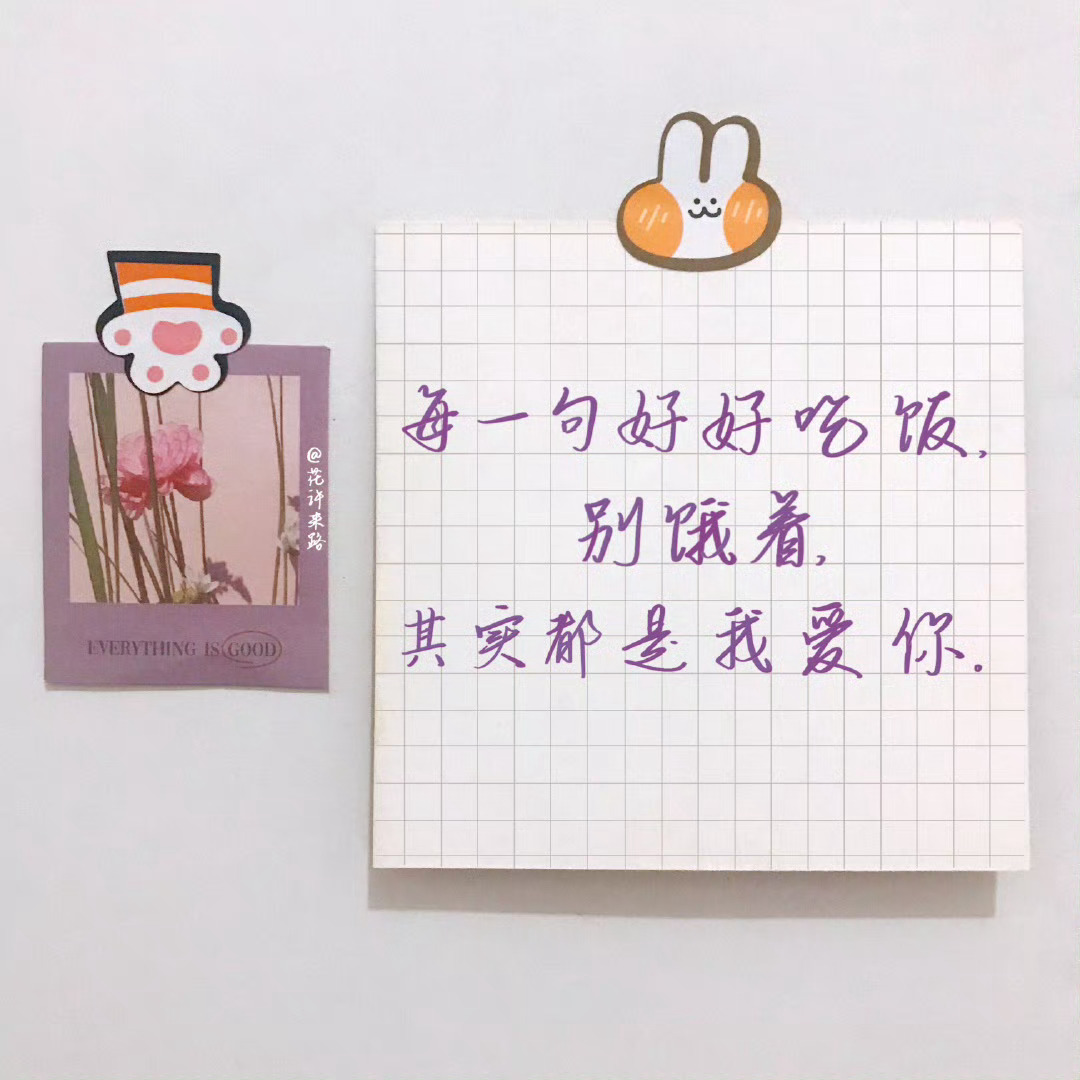 每一句好好吃饭,
别饿着,
其实都是我爱你.
@花许来路
EVERYTHING IS GOOD